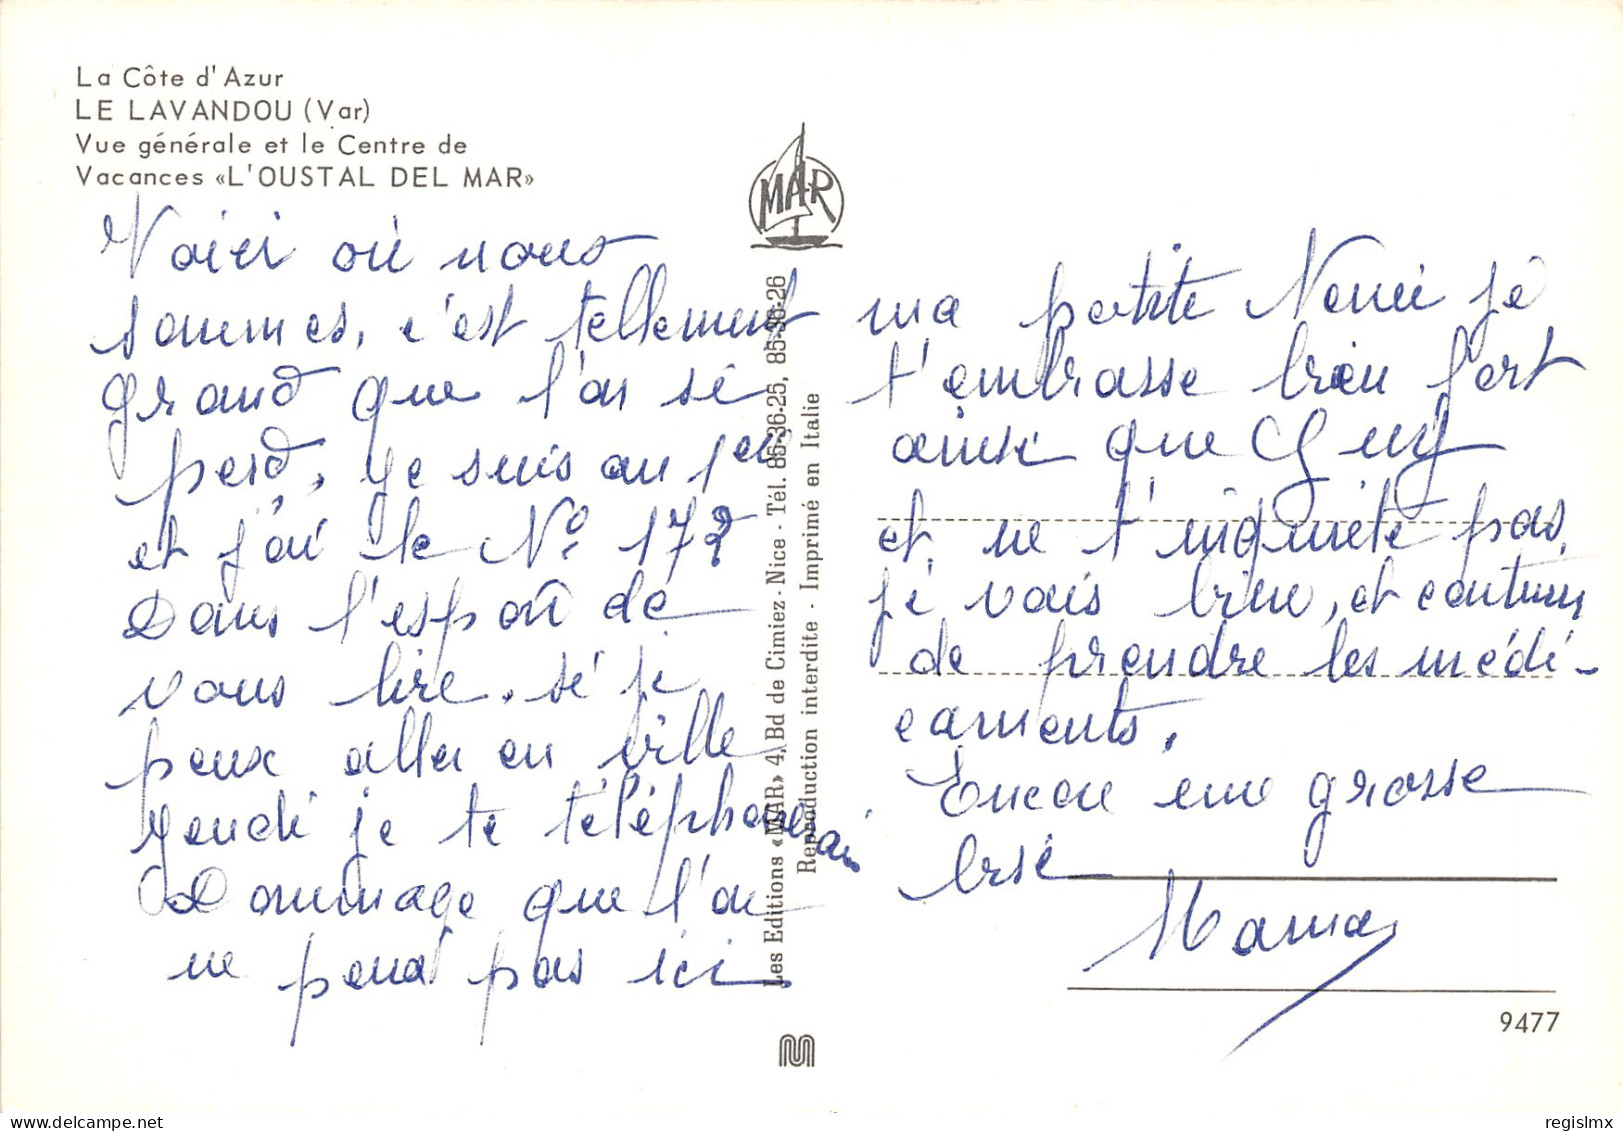 La Côte d'Azur
LE LAVANDOU (Var)
Vue générale et le Centre de
Vacances «L'OUSTAL DEL MAR»
MAR
Voici où nous
sommes, c'est tellement
grand que l'on sé
perd, je suis au 1er
et j'ai le N° 172
Dans l'espoir de
vous lire. sé je
peux aller en ville
Jeudi je te téléphonerai
Dommage que l'on
ne peut pas ici
Les Editions «MAR» 4, Bd de Cimiez - Nice - Tél. 85-36-25, 85-36-26
Reproduction interdite - Imprimé en Italie
ma petite je
t'embrasse bien fort
ainsi que
et ne t'inquiète pas,
je vais bien, et continue
de prendre les médi-
caments.
Encore une grosse
bise
Mama
9477
regislmx